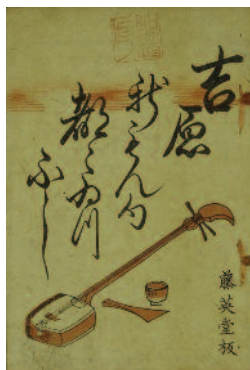 吉原
新もん句
都〻ゐ川
ふし
藤英堂板